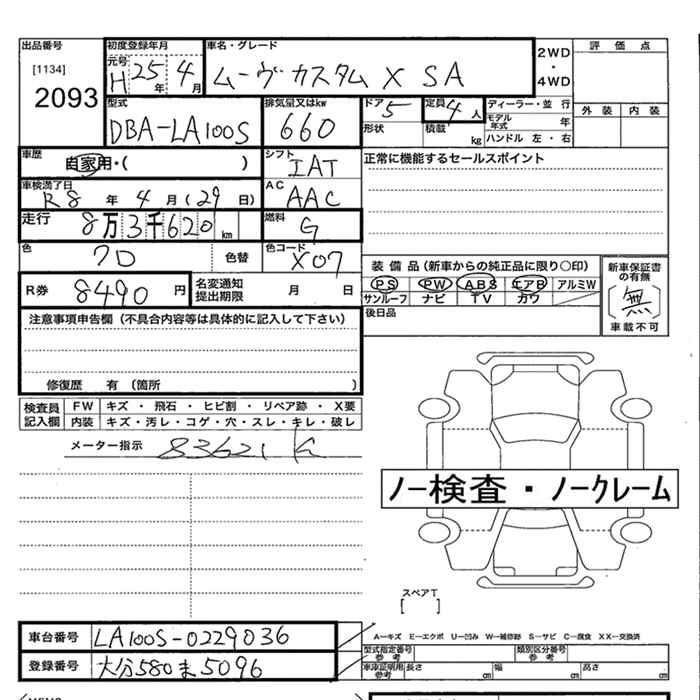 出品番号 [1134] 2093
初度登録年月 元号 H 25年 4月
車名・グレード ムーヴカスタム X SA
2WD・4WD
評価点
型式 DBA-LA100S
排気量又はkw 660
ドア 5
定員 4人
ディーラー・並行
外装 内装
形状
積載 kg
モデル年式 年
ハンドル 左・右
車歴 自家用・( )
シフト IAT
正常に機能するセールスポイント
車検満了日 R8年 4月(29日)
AC AAC
走行 8万3千620km
燃料 G
色 クロ 色替
色コード X07
装備品(新車からの純正品に限り○印)
新車保証書の有無 〔無〕 車載不可
R券 8490円
名変通知提出期限 月 日
PS PW ABS エアB アルミW
サンルーフ ナビ TV カワ
後日品
注意事項申告欄(不具合内容等は具体的に記入して下さい)
修復歴 有(箇所 )
検査員記入欄
FW キズ・飛石・ヒビ割・リペア跡・X要
内装 キズ・汚レ・コゲ・穴・スレ・キレ・破レ
メーター指示 83621 K
ノー検査・ノークレーム
スペアT
[ ]
車台番号 LA100S-0229036
A-キズ E-エクボ U-凹み W-補修跡 S-サビ C-腐食 XX-交換済
登録番号 大分580ま5096
型式指定番号 参考
類別区分番号 参考
車庫証明用 参考 長さ cm 幅 cm 高さ cm